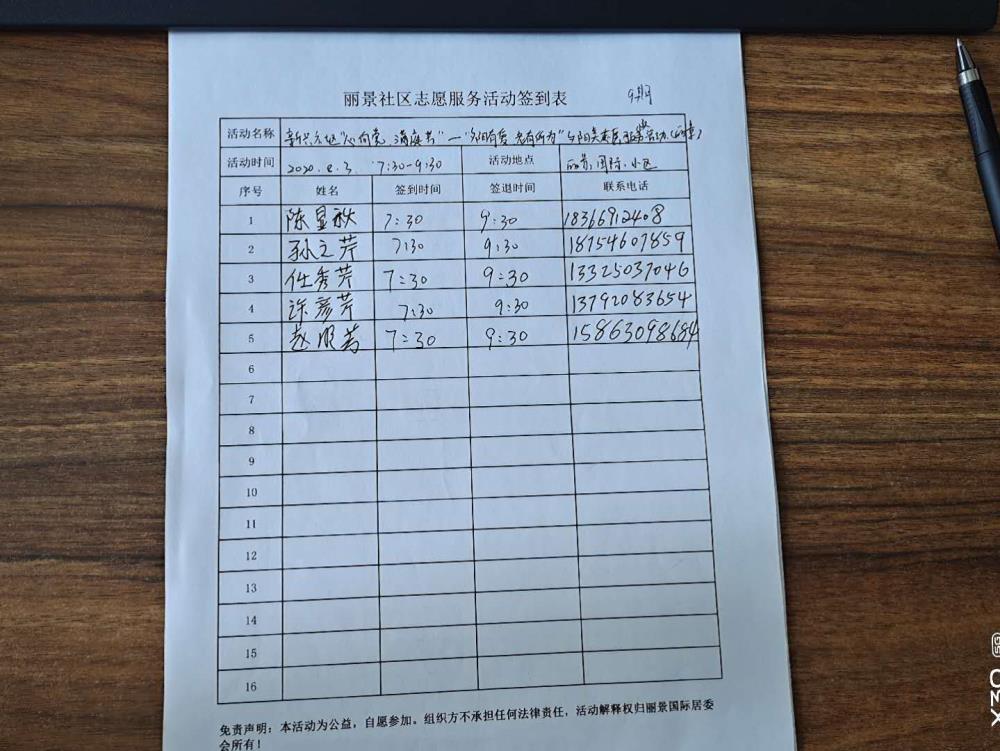 丽景社区志愿服务活动签到表 9期
活动名称 "心向党 满庭芳"一"夕阳有爱 老有所为"夕阳关爱
活动时间 2020.8.3. 7:30-9:30 活动地点 丽景国际小区
序号 姓名 签到时间 签退时间 联系电话
1 陈显秋 7:30 9:30 18366912408
2 孙立芹 7:30 9:30 18754607859
3 任秀芹 7:30 9:30 13325037046
4 许彦芹 7:30 9:30 13792083654
5 赵 7:30 9:30 15863098684
6
7
8
9
10
11
12
13
14
15
16
免责声明：本活动为公益，自愿参加。组织方不承担任何法律责任，活动解释权归丽景国际居委
会所有！
X30 5G